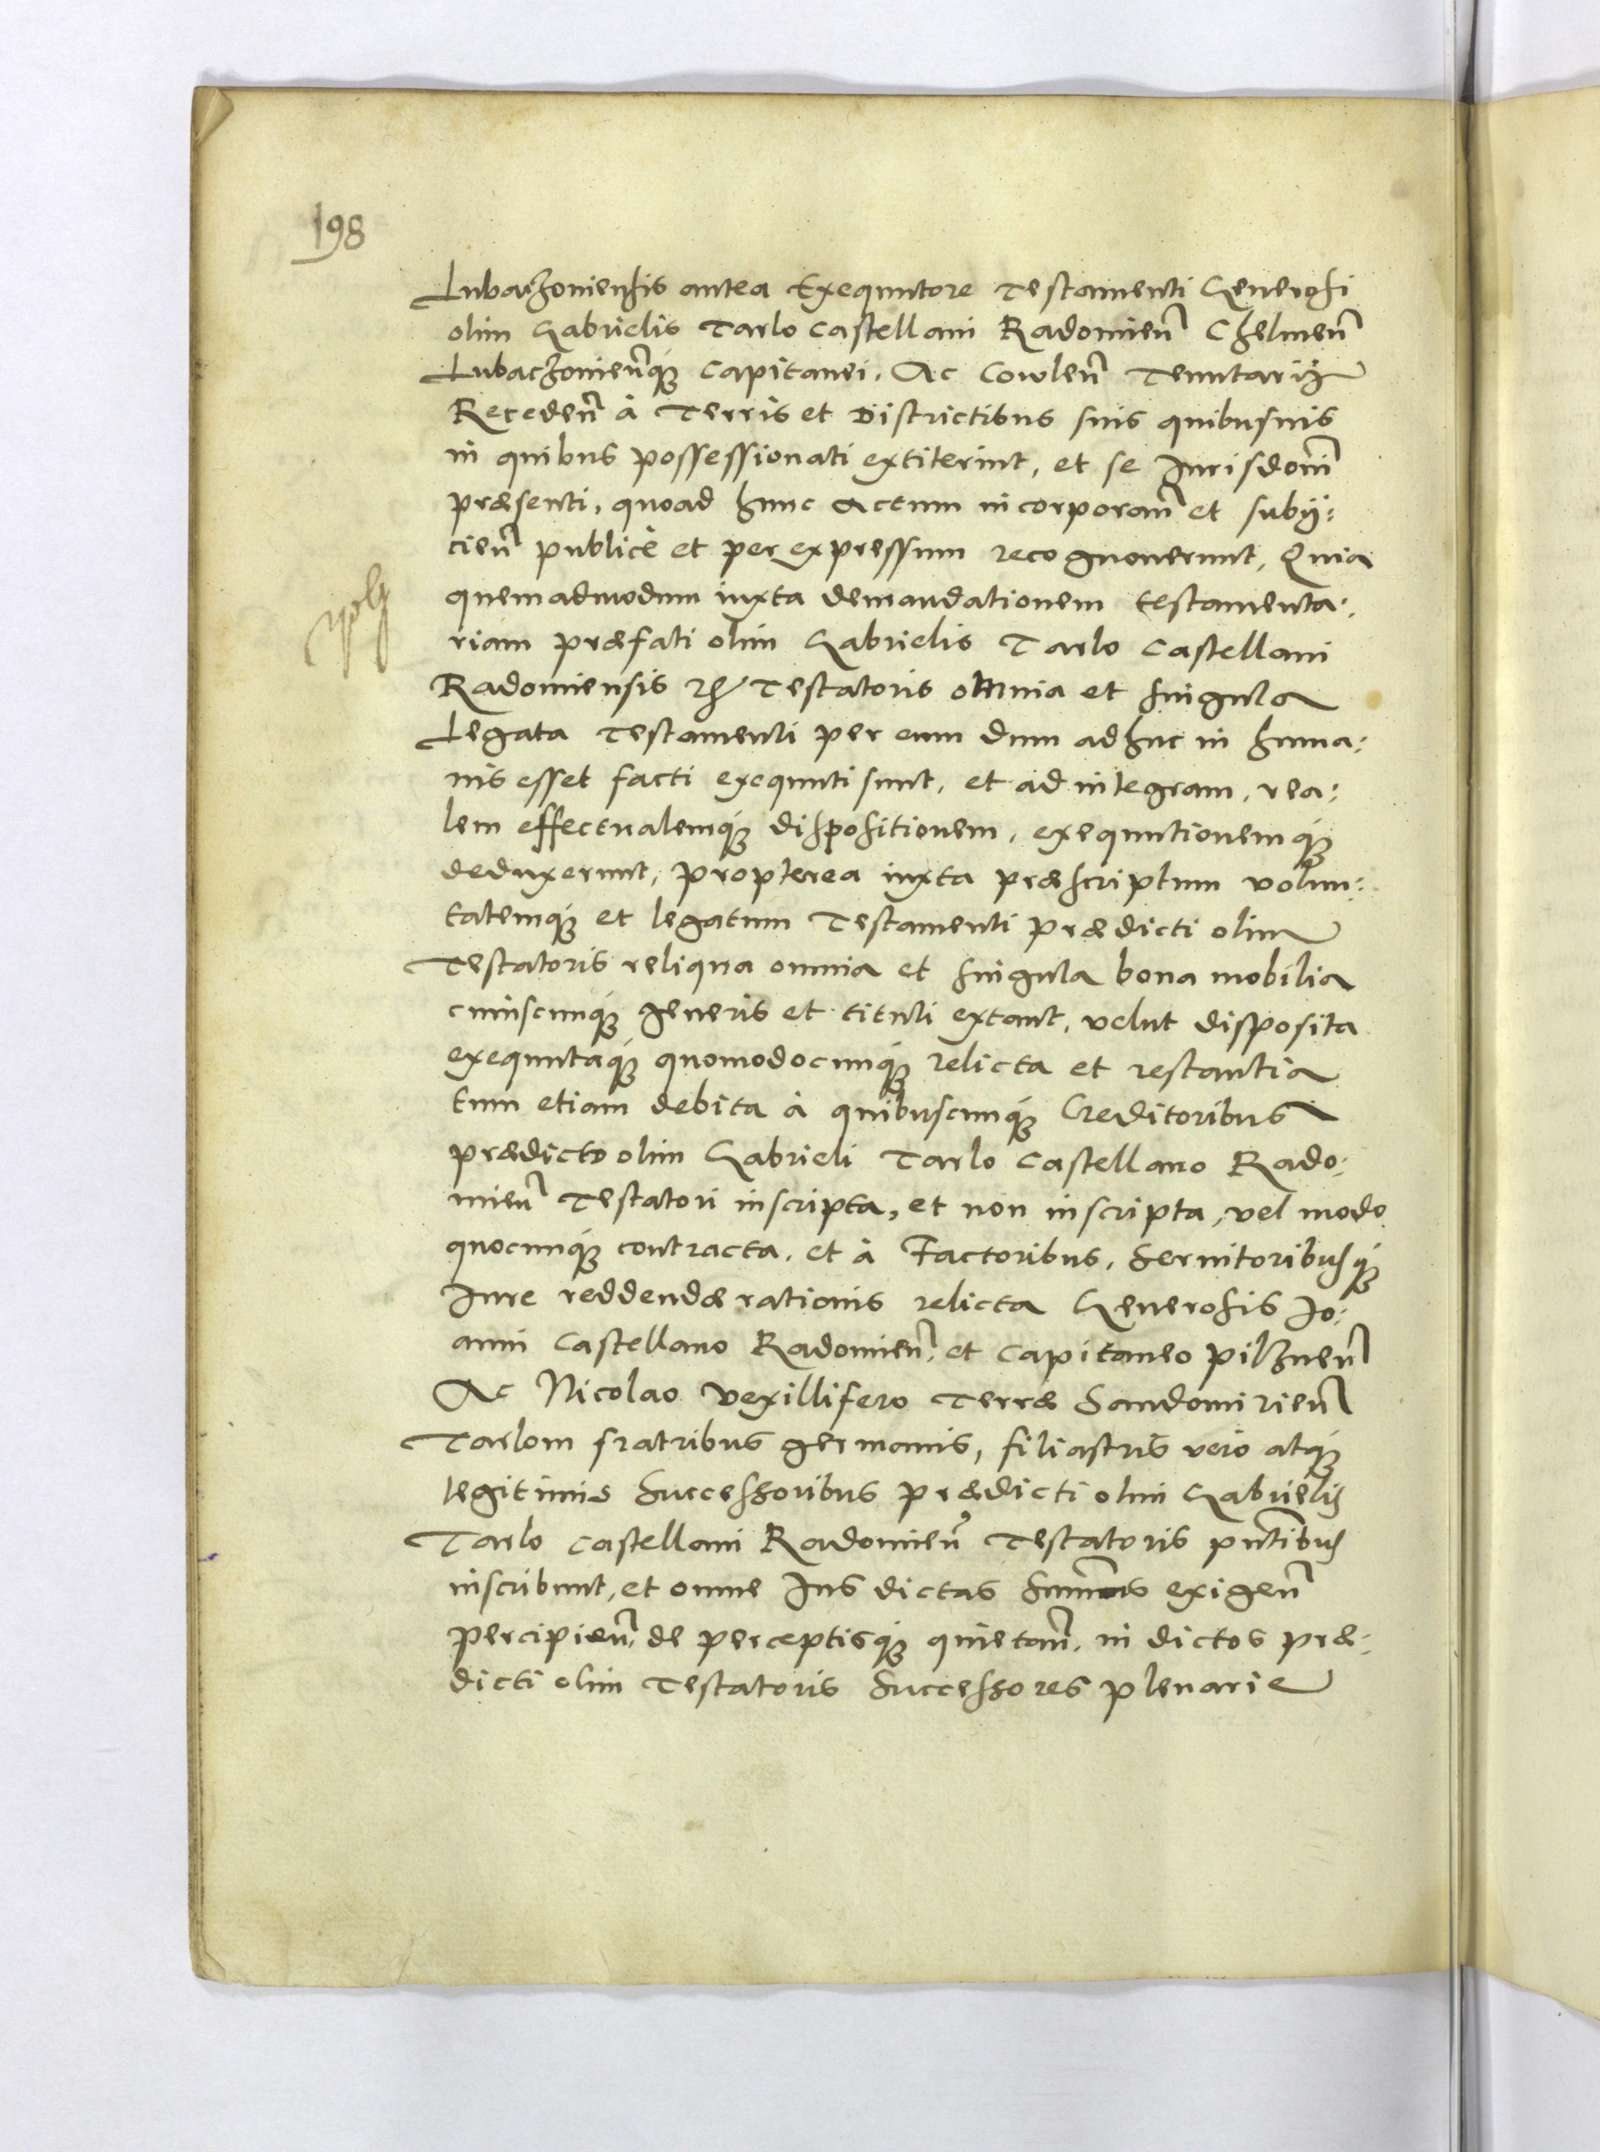 198
Lubaczoviensis antea Exequutore Testamenti Generosi
olim Gabrielis Tarlo Castellani Radomien̄ Chelmen̄
Lubaczovien̄que Capitanei. Ac Cowlen̄ Tenutarij
Receden̄ à Terris et Districtibus suis quibusuis
in quibus possessionati extiterint, et se Iurisdoni̅
præsenti, quoad hunc Actum incorporan̄ et subij:
cien̄ publicè et per expressum recognouerunt, Quia
quemadmodum iuxta demandationem testamenta:
riam præfati olim Gabrielis Tarlo Castellani
Radomiensis Testatoris omnia et singula
Legata Testamenti per eum dum adhuc in huma:
nis esset facti exequuti sunt, et ad integram, rea:
lem effectualemque dispositionem, exequutionemque
deduxerunt, propterea iuxta præscriptum volun:
tatemque et legatum Testamenti prædicti olim
Testatoris reliqua omnia et singula bona mobilia
cuiuscunque generis et tituli extant, velut disposita
exequutaque quomodocunque relicta et restantia
tum etiam debita à quibuscunque Creditoribus
prædicto olim Gabrieli Tarlo Castellano Rado:
mien̄ Testatori inscripta, et non inscripta, vel modo
quocunque contracta, et à Factoribus, Seruitoribusque
Iure reddendæ rationis relicta Generosis Io:
anni Castellano Radomien̄, et Capitaneo Pilznen̄
Ac Nicolao Vexillifero Terræ Sandomirien̄
Tarlom fratribus germanis, filiastris vero atque
legitimis Successoribus prædicti olim Gabrielis
Tarlo Castellani Radomien̄ Testatoris pn̄tibus
inscribunt, et omne Ius dictas Sum̄as exigen̄
percipien̄, de perceptisque quietan̄, in dictos præ:
dicti olim Testatoris Successores plenarie